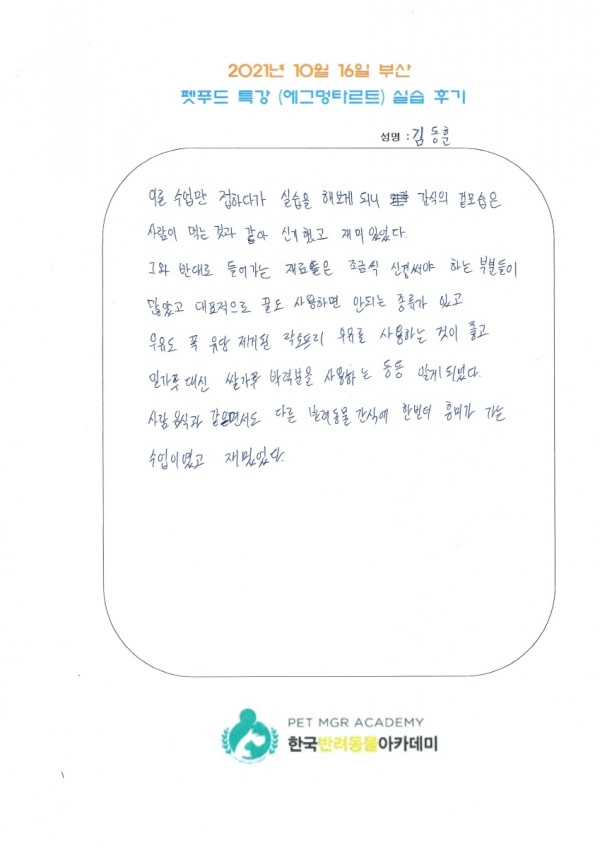 2021년 10월 16일 부산
펫푸드 특강 (에그멍타르트) 실습 후기
성명 : 김동훈
이론 수업만 접하다가 실습을 해보게 되니 간식의 겉모습은
사람이 먹는 것과 같아 신기했고 재미있었다.
그와 반대로 들어가는 재료들은 조금씩 신경써야 하는 부분들이
많았고 대표적으로 꿀도 사용하면 안되는 종류가 있고
우유도 꼭 유당 제거된 락토프리 우유를 사용하는 것이 좋고
밀가루 대신 쌀가루 박력분을 사용하는 등등 알게 되었다.
사람 음식과 같으면서도 다른 반려동물 간식에 한번더 흥미가 가는
수업이였고 재밌었다.
PET MGR ACADEMY
한국반려동물아카데미